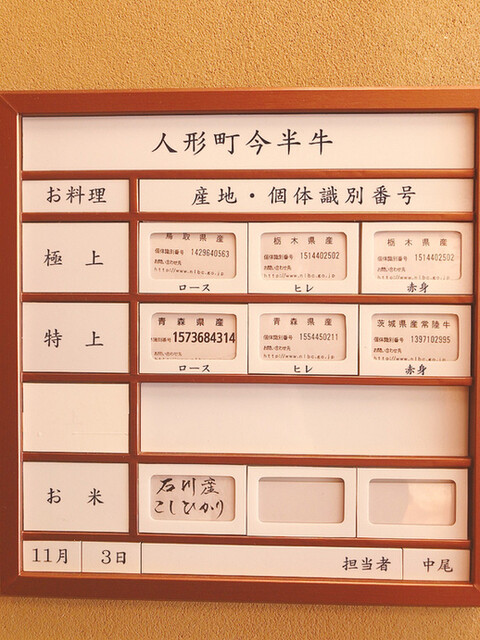 人形町今半牛
お料理 産地・個体識別番号
極上
鳥取県産
個体識別番号 1429640563
お問い合わせ先
http://www.nlbc.go.jp
ロース
栃木県産
個体識別番号 1514402502
お問い合わせ先
http://www.nlbc.go.jp
ヒレ
栃木県産
個体識別番号 1514402502
お問い合わせ先
http://www.nlbc.go.jp
赤身
特上
青森県産
個体識別番号 1573684314
お問い合わせ先
http://www.nlbc.go.jp
ロース
青森県産
個体識別番号 1554450211
お問い合わせ先
http://www.nlbc.go.jp
ヒレ
茨城県産常陸牛
個体識別番号 1397102995
お問い合わせ先
http://www.nlbc.go.jp
赤身
お米
石川産
こしひかり
11月 3日 担当者 中尾